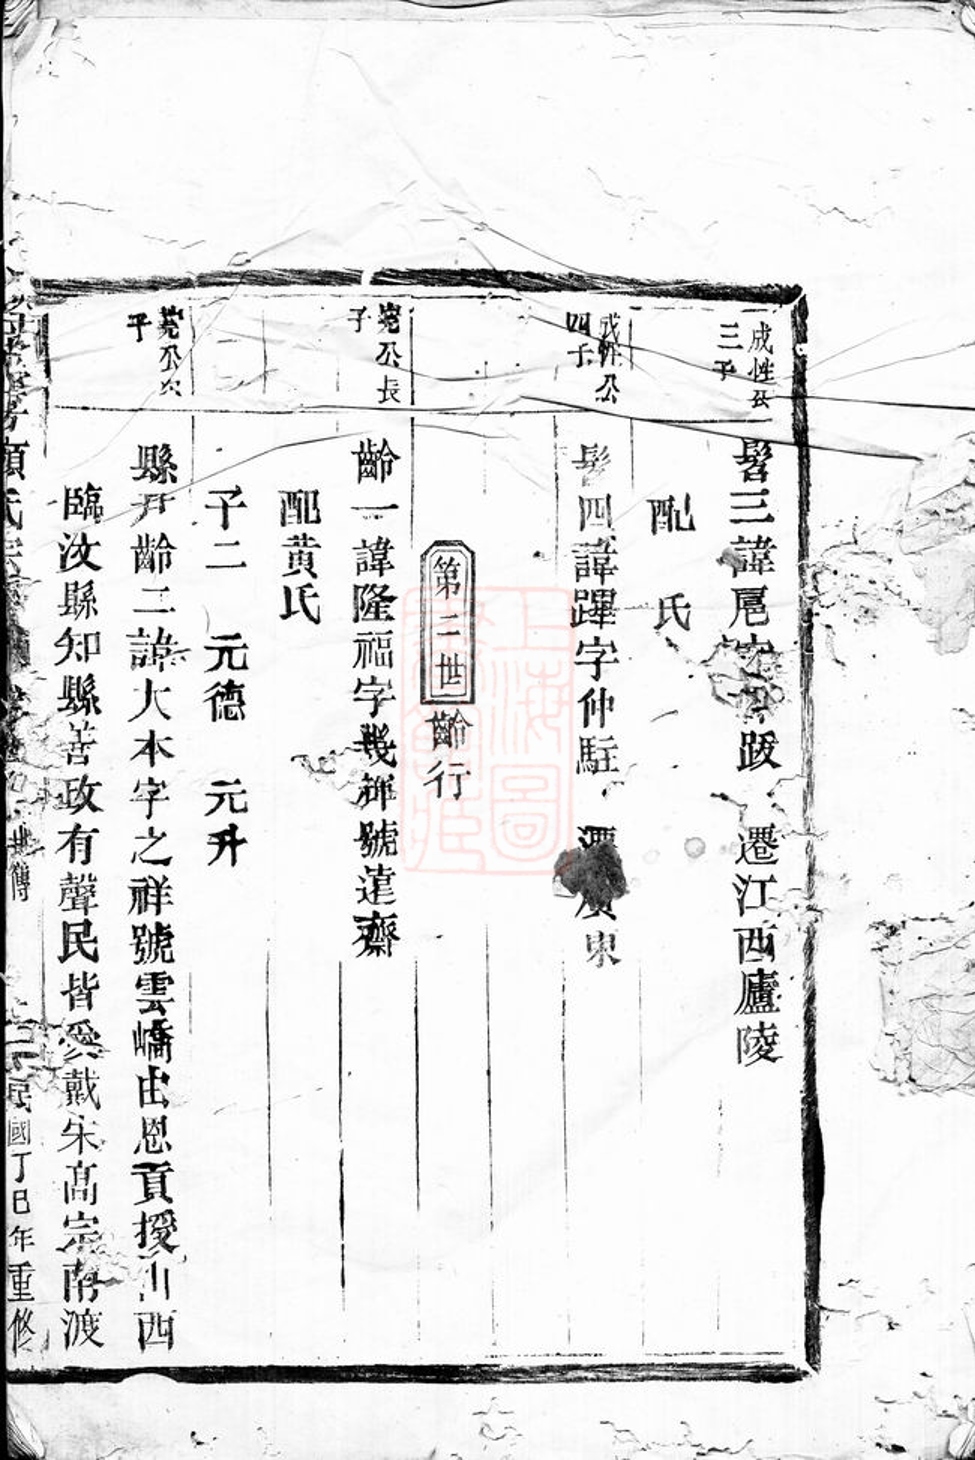 成性公
三子
髫三諱尾字跋 遷江西廬陵
配 氏
成性公
四子
髫四諱蹕字仲駐 遷廣東
第二世 齡行
公長
子
齡一諱隆福字幾祥號遠齋
配黄氏
子二 元德 元升
公次
子
縣尹齡二諱大本字之祥號雲嶠由恩貢授山西
臨汝縣知縣善政有聲民皆愛戴宋高宗南渡
氏宗
世傳
民國丁巳年重修
上海圖